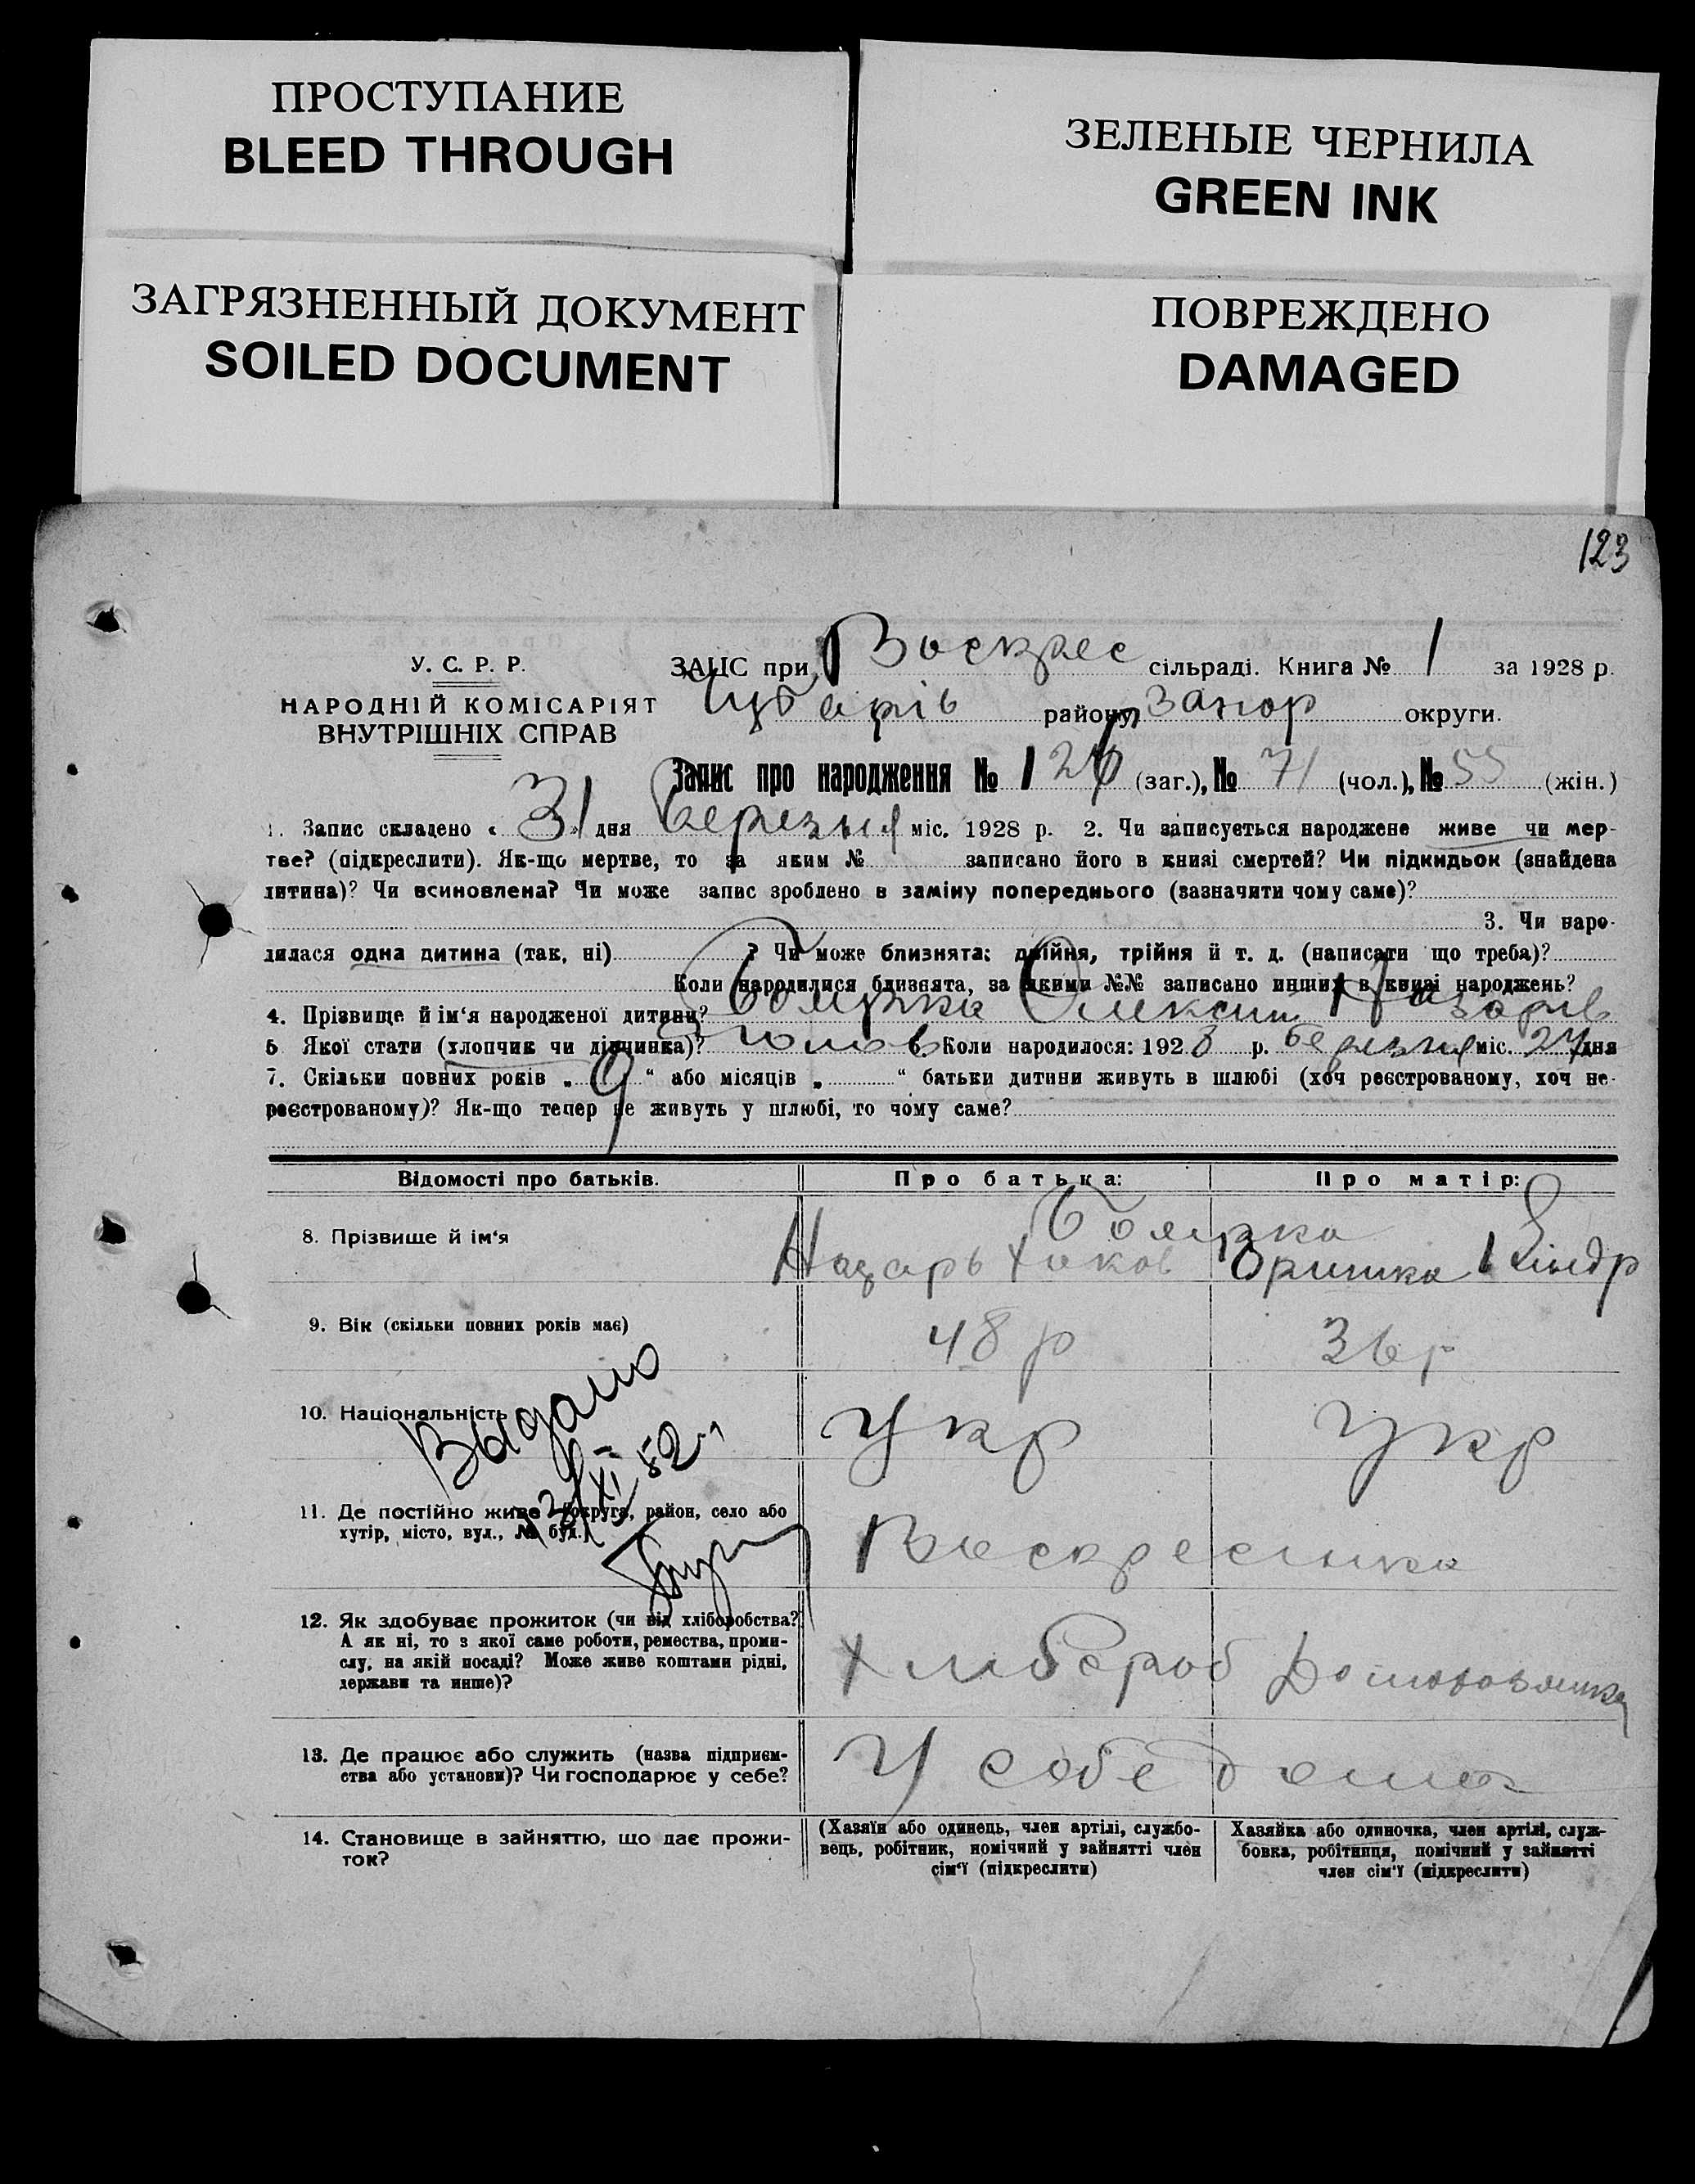 ПРОСТУПАНИЕ
BLEED THROUGH
ЗЕЛЕНЫЕ ЧЕРНИЛА
GREEN INK
ЗАГРЯЗНЕННЫЙ ДОКУМЕНТ
SOILED DOCUMENT
ПОВРЕЖДЕНО
DAMAGED
123
У. С. Р. Р.
НАРОДНІЙ КОМІСАРІЯТ
ВНУТРІШНІХ СПРАВ
ЗАЦС при Воскрес сільраді. Книга № 1 за 1928 р.
району Запор округи.
Запис про народження № 126 (заг.), № 71 (чол.), № 55 (жін.)
1. Запис складено « 31 » дня березня міс. 1928 р. 2. Чи записується народжене живе чи мер-
тве? (підкреслити). Як-що мертве, то за яким № записано його в книзі смертей? Чи підкидьок (знайдена
дитина)? Чи всиновлена? Чи може запис зроблено в заміну попереднього (зазначити чому саме)?
3. Чи наро-
дилася одна дитина (так, ні) ? Чи може близнята: двійня, трійня й т. д. (написати що треба)?
Коли народилися близнята, за якими №№ записано инших в книзі народжень?
4. Прізвище й ім‘я народженої дитини? Назарів
5 Якої стати (хлопчик чи дівчинка)? 6. Коли народилося: 1928 р. березня міс. 27 дня
7. Скільки повних років „ 9 “ або місяців „ “ батьки дитини живуть в шлюбі (хоч реєстрованому, хоч не-
реєстрованому)? Як-що тепер не живуть у шлюбі, то чому саме?
Відомості про батьків. Про батька: Про матір:
8. Прізвище й ім‘я
Назарь Оришка
9. Вік (скільки повних років має) 48 р 36 р
10. Національність Укр Укр
Выдано
13/XI 52
11. Де постійно живе (округа, район, село або
хутір, місто, вул., № буд.) Воскресинка
12. Як здобуває прожиток (чи від хліборобства?
А як ні, то з якої саме роботи, ремества, проми-
слу, на якій посаді? Може живе коштами рідні,
держави та инше)?
Хлибероб
13. Де працює або служить (назва підприєм-
ства або установи)? Чи господарює у себе? У себе дома
14. Становище в зайняттю, що дає прожи-
ток?
(Хазяїн або одинець, член артілі, службо-
вець, робітник, помічний у зайнятті член
сім‘ї (підкреслити)
Хазяйка або одиночка, член артілі, служ-
бовка, робітниця, помічний у зайнятті
член сім‘ї (підкреслити)